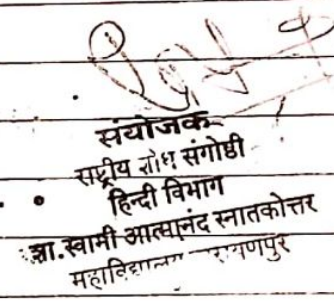 संयोजक
राष्ट्रीय शोध संगोष्ठी
हिन्दी विभाग
शा.स्वामी आत्मानंद स्नातकोत्तर
महाविद्यालय